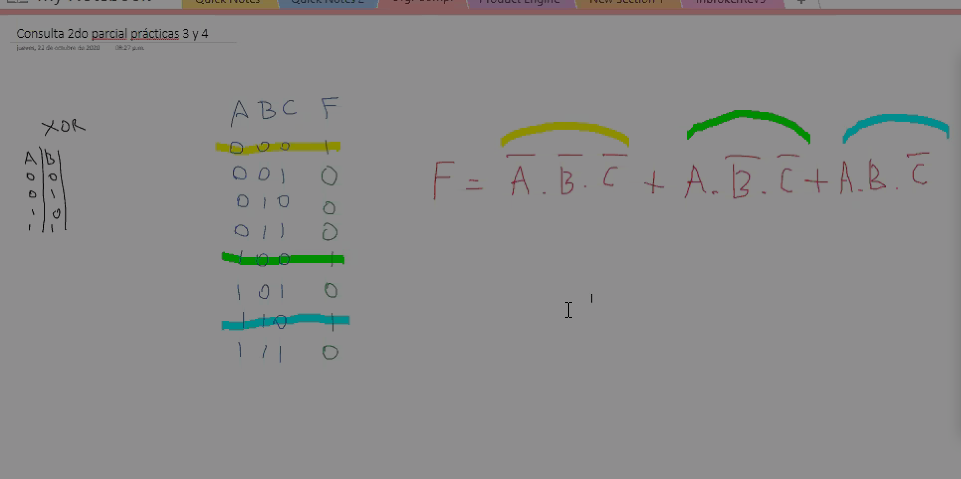 My Notebook Quick Notes Quick Notes 2 Product Engine New Section 1
Consulta 2do parcial prácticas 3 y 4
jueves, 22 de octubre de 2020 06:27 p.m.
XOR
A B
0 0
0 1
1 0
1 1
A B C F
0 0 0 1
0 0 1 0
0 1 0 0
0 1 1 0
1 0 0 1
1 0 1 0
1 1 0 1
1 1 1 0
F = A̅ . B̅ . C̅ + A . B̅ . C̅ + A . B . C̅